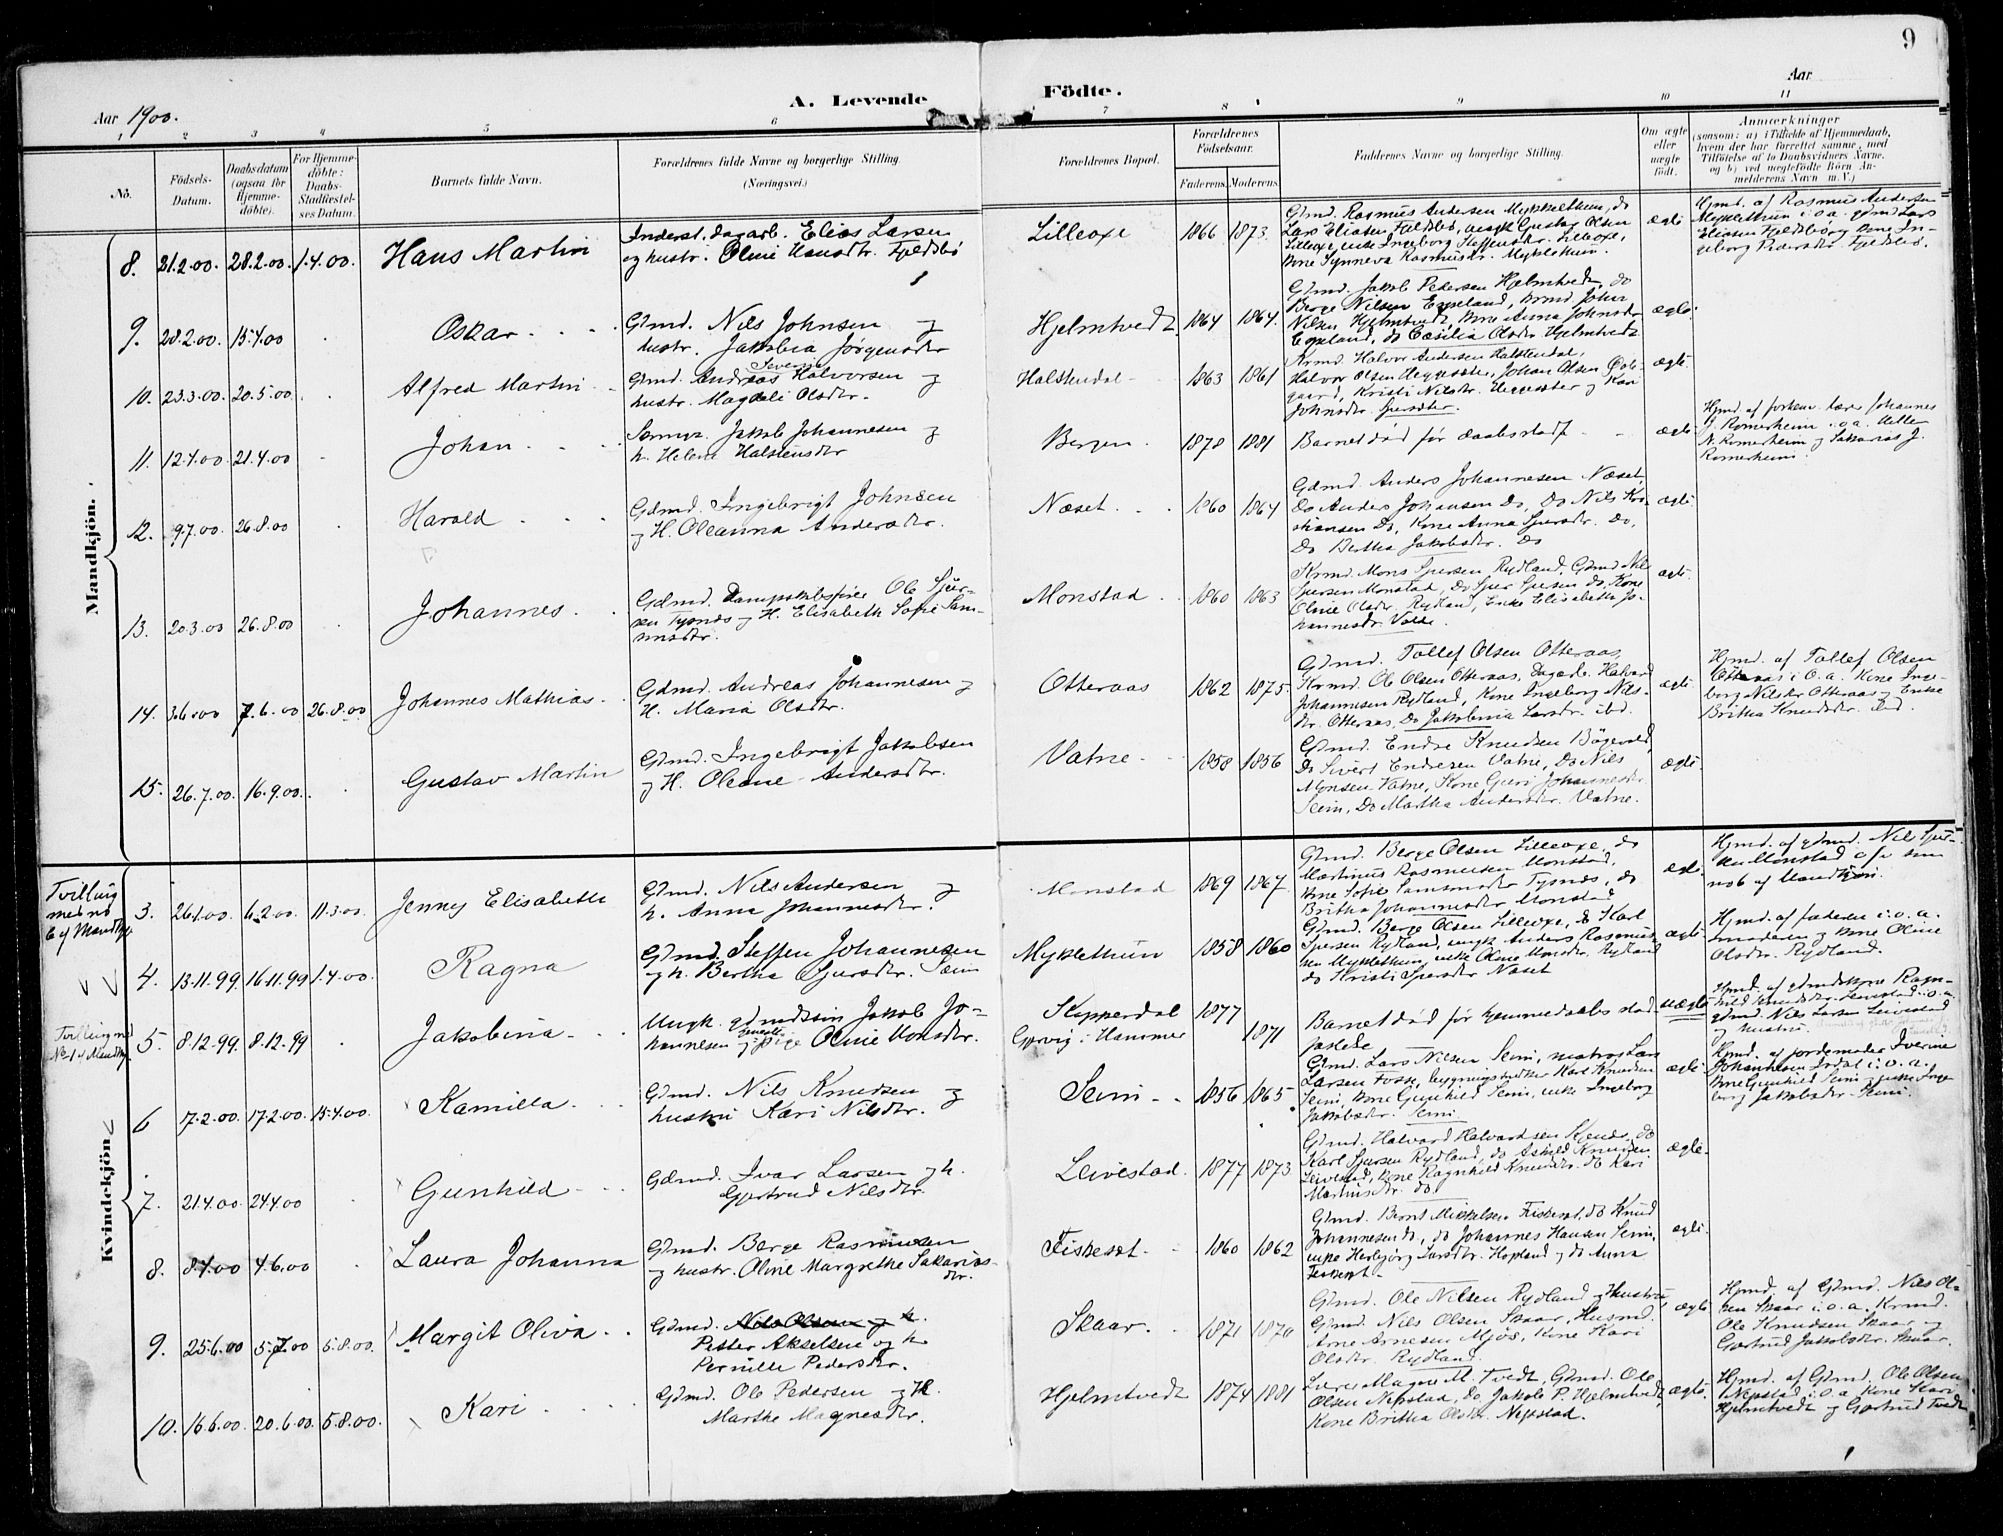 9
Aar 1900.
A. Levende Födte.
Aar
1 2 3 4 5 6 7 8 9 10 11
No.
Födsels-Datum.
Daabsdatum (ogsaa for Hjemme-döbte).
For Hjemme-döbte: Daabs-Stadfæstel-ses Datum.
Barnets fulde Navn.
Forældrenes fulde Navne og borgerlige Stilling. (Næringsvei.)
Forældrenes Bopæl.
Forældrenes Födselsaar.
Faderens. Moderens.
Faddernes Navne og borgerlige Stilling.
Om ægte eller uægte födt.
Anmærkninger
(saasom: a) i Tilfælde af Hjemmedaab, hvem der har forrettet samme, med Tilföielse af to Daabsvidners Navne. og b) ved uegtefödte Börn Anmelderens Navn m. V.)
Mandkjön.
8. 21.2.00. 28.2.00. 1.4.00. Hans Martin
Inderst. dagarb. Elias Larsen
og hustr. Oline Hansdtr. Fjeldsbö
Lilleoxe 1866 1873.
Gdmd. Rasmus Andersen Myklethun, do
Lars Eliasen Fjeldsbö, ungk Gustav Olsen
Lilleoxe, enke Ingeborg Steffensdtr. Lilleoxe,
Kone Synneva Rasmusdtr. Myklethun.
ægte
Hjmd. af Rasmus Andersen
Myklethun i.o.a. gdmd Lars
Eliasen Fjeldsbö og Kone In-
geborg Pedersdtr Fjeldsbö.
9. 28.2.00. 15.4.00 Oskar
Gdmd. Nils Johnsen og
hustr. Jakobia Jørgensdtr
Hjelmtvedt 1864 1864.
Gdmd. Jakob Pedersen Hjelmtvedt, do
Berge Nilsen Eppeland, Krmd John
Nilsen Hjelmtvedt, Kone Anna Johnsdtr
Eppeland, do Cæsilia Olsdtr Hjelmtvedt
ægte.
10. 23.3.00. 20.5.00. Alfred Martin
Severin
Gdmd. Andreas Halvorsen og
hustr. Magdeli Olsdtr.
Halstendal 1863 1861
Krmd Halvor Andersen Halstendal,
Halvor Olsen Heggesæter, Johan Olsen
gaard, Kristi Nilsdtr. Heggesæter og Kari
Johnsdtr.
ægte.
11. 12.4.00. 21.4.00 Johan
Jakob Johannesen og
h. Helene Halstensdtr
Bergen. 1878 1881 Barnet död för daabsstadf ægte
Hjmd. af forhenv. lærer Johannes
J. Romerheim i.o.a. Helle
N. Romerheim og Sakarias J.
Romerheim.
12. 9.7.00. 26.8.00 Harald
Gdmd. Ingebrigt Johnsen
og H. Oleanna Andersdtr.
Næset 1860 1864
Gdmd. Anders Johannesen Næset,
Do Anders Johansen Do, Do Nils Kri-
stiansen Do, Kone Anna Sjursdtr. Do,
Do Bertha Jakobsdtr. Do
ægte.
13. 20.3.00 26.8.00 Johannes
Gdmd. Dampskibsförer Ole Sjur-
sen Tysnes og H. Elisabeth Sofie Sam-
sonsdtr.
Monstad 1860 1863
Krmd. Mons Sjursen Rydland, Gdmd Nils
Sjursen Monstad, Do Sjur Sjursen Do, Kone
Oline Olsdtr. Rydland, Enke Elisabeth Jo-
hannesdtr Valle.
ægte.
14. 3.6.00 7.6.00 26.8.00 Johannes Mathias
Gdmd. Andreas Johannesen og
H. Maria Olsdtr.
Otteraas 1862 1875
Gdmd. Tollef Olsen Otteraas,
Krmd. Ole Olsen Otteraas, Dagarb. Halvard
Johannesen Rydland, Kone Ingeborg Nils-
dtr. Otteraas, Do Jakobinia Larsdtr. ibd.
ægte.
Hjmd. af Tollef Olsen
Otteraas i.o.a. Kone Inge-
borg Nilsdtr Otteraas og Enke
Britha Knudsdtr. ibd.
15. 26.7.00. 16.9.00. Gustav Martin
Gdmd. Ingebrigt Jakobsen
og H. Oleane Andersdtr.
Vatne 1858 1856
Gdmd. Endre Knudsen Bögevold,
Do Sivert Endresen Vatne, Do Nils
Monsen Vatne, Kone Guri Johannesdtr
Seim, Do Martha Andersdtr. Vatne.
ægte.
Kvindekjön.
Tvilling
med no
6 af Mandkj.
3. 26.1.00. 6.2.00. 11.3.00. Jenny Elisabeth
Gdmd. Nils Andersen og
h. Anna Johannesdtr.
Monstad 1869 1867.
Gdmd. Berge Olsen Lilleoxe, do
Martinus Rasmussen Monstad,
Kone Sofie Samsonsdtr Tysnes, do
Britha Johannesdtr Monstad
ægte.
Hjmd. af gdmd. Nils Sjur-
sen Monstad
no 6 af Mandkjön.
4. 13.11.99. 16.11.99 1.4.00. Ragna
Gdmd. Steffen Johannesen
og h. Bertha Sjursdtr. Seim
Myklethun 1858 1860
Gdmd. Berge Olsen Lilleoxe, do Karl
Sjursen Rydland, ungk Anders Rasmus-
sen Myklethun, enke Oline Monsdtr. Rydland
do Kristi Sjursdtr Næset
ægte.
Hjmd. af faderen i.o.a.
moderen og Kone Oline
Olsdtr. Rydland.
Tvilling md
No 1 af Mandkj.
5. 8.12.99. 8.12.99 Jakobina
Ungk. gdmdssön Jakob Jo-
hannesen og pige Oline Monsdtr.
Skipperdal 1877
Gjervig i Hammer 1871
Barnet död för hjemmedaabs stad-
fæstede
uægte
Hjmd. af gdmdskone Ragn-
hild Knudsdtr Leivestad i.o.a.
gdmd. Nils Larsen Leivestad
og hustru.
6 17.2.00. 17.2.00. 15.4.00. Kamilla
Gdmd. Nils Knudsen og
hustru Kari Nilsdtr.
Seim 1856 1865
Gdmd. Lars Nilsen Seim, matros Lars
Larsen Fosse, bygningssnedker Karl Knudsen
Seim, Kone Gunhild Seim, enke Ingeborg
Jakobsdtr. Seim.
ægte.
Hjmd. af jordemoder Iverine
Johannesen Irdal i.o.a.
Kone Gunhild Seim og enke Inge-
borg Jakobsdtr. Seim.
7. 21.4.00 24.4.00 Gunhild
Gdmd. Ivar Larsen og h.
Gjertrud Nilsdtr.
Leivestad. 1877 1873
Gdmd. Halvard Halvardsen do
Karl Sjursen Rydland, do Askild Knudsen
Leivestad, Kone Ragnhild Knudsdtr. do Kari
Martinsdtr. do
ægte.
8. 8.4.00 4.6.00 Laura Johanna
Gdmd. Berge Rasmussen
og hustr. Oline Margrethe Sakarias-
dtr.
Fiskeset 1860 1862
Gdmd. Bernt Mikkelsen Fiskeset, do Knud
Johannesen do, do Johannes Hansen Seim,
enke Herbjörg Larsdtr. Hopland og do Anna
Fiskeset.
ægte.
9. 25.6.00 5.7.00 5.8.00. Margit Oliva
Gdmd. Nils Olsen og h.
Petter Akselsen og h.
Pernille Pedersdtr.
Skaar. 1871 1870
Gdmd. Ole Nilsen Rydland og Hustru,
Gdmd. Nils Olsen Skaar, Husmd.
Arne Arnesen Mjös, Kone Kari
Olsdtr. Rydland.
ægte.
Hjmd. af Gdmd. Nils Ol-
sen Skaar i.o.a. Krmd.
Ole Knudsen Skaar og
Gjertrud Jakobsdtr. Skaar.
10. 16.6.00. 20.6.00. 5.8.00. Kari
Gdmd. Ole Pedersen og H.
Marthe Magnesdtr.
Hjelmtvedt 1874 1881
Magne M. Tvedt, Gdmd. Ole
Olsen Nepstad, Do Jakob P. Hjelmtvedt,
Kone Britha Olsdtr. Nepstad.
ægte.
Hjmd. af Gdmd. Ole Olsen
Nepstad i.o.a. Kone Kari
Hjelmtvedt og Gjertrud Tvedt